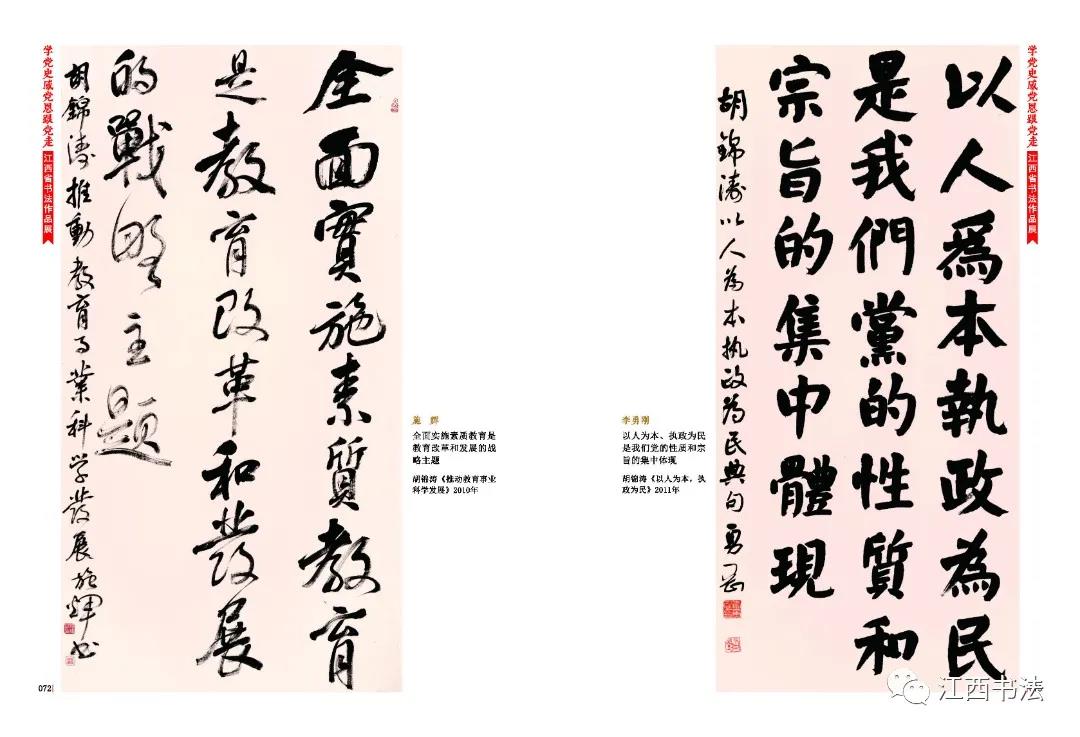 学党史感党恩跟党走
江西省书法作品展
全面實施素質教育
是教育改革和發展
的戰略主題
胡錦濤推動教育事業科学發展施輝书
施 辉
全面实施素质教育是
教育改革和发展的战
略主题
胡锦涛《推动教育事业
科学发展》2010年
072
李勇刚
以人为本、执政为民
是我们党的性质和宗
旨的集中体现
胡锦涛《以人为本，执
政为民》2011年
以人爲本執政為民
是我們黨的性質和
宗旨的集中體現
胡錦濤以人為本执政為民典句勇刚
学党史感党恩跟党走
江西省书法作品展
江西书法